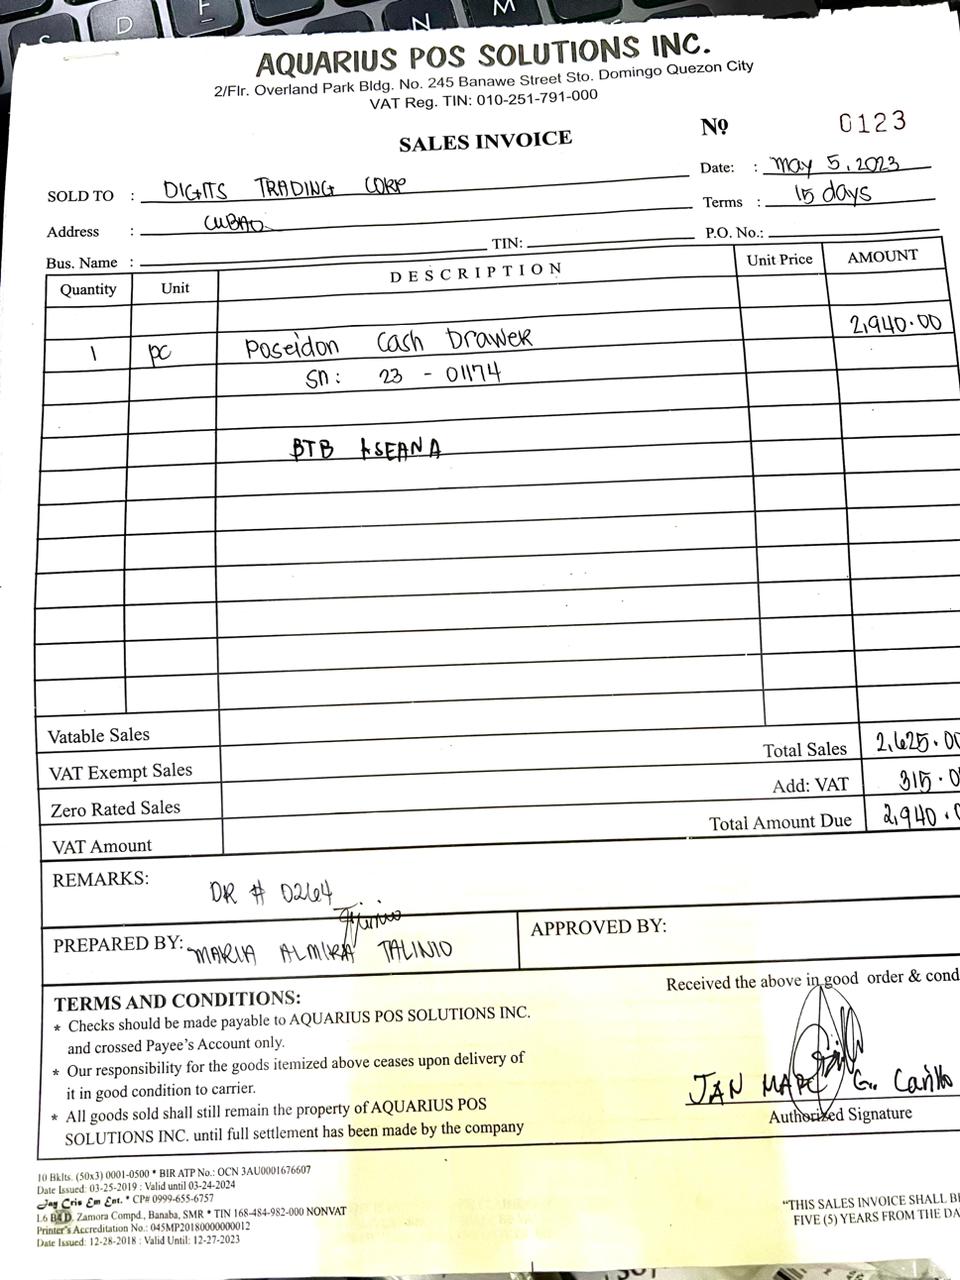 AQUARIUS POS SOLUTIONS INC.
2/Flr. Overland Park Bldg. No. 245 Banawe Street Sto. Domingo Quezon City
VAT Reg. TIN: 010-251-791-000
SALES INVOICE
№ 0123
Date: : May 5, 2023
SOLD TO : DIGITS TRADING CORP
Terms : 15 days
Address : CUBAO
P.O. No.:
Bus. Name : TIN:
Quantity Unit DESCRIPTION Unit Price AMOUNT
1 pc Poseidon Cash Drawer 2,940.00
Sn: 23 - 01174
BTB ASEANA
Vatable Sales
Total Sales 2,625.00
VAT Exempt Sales
Add: VAT 315.0
Zero Rated Sales
Total Amount Due 2,940.0
VAT Amount
REMARKS: DR # 0264
PREPARED BY: MARIA ALMIRA TALINIO
APPROVED BY:
Received the above in good order & cond
TERMS AND CONDITIONS:
* Checks should be made payable to AQUARIUS POS SOLUTIONS INC.
and crossed Payee's Account only.
* Our responsibility for the goods itemized above ceases upon delivery of
it in good condition to carrier.
* All goods sold shall still remain the property of AQUARIUS POS
SOLUTIONS INC. until full settlement has been made by the company
JAN MARC G. Carillo
Authorized Signature
10 Bklts. (50x3) 0001-0500 * BIR ATP No.: OCN 3AU0001676607
Date Issued: 03-25-2019 : Valid until 03-24-2024
Jay Cris Em Ent. * CP# 0999-655-6757
L6 B4 D. Zamora Compd., Banaba, SMR * TIN 168-484-982-000 NONVAT
Printer's Accreditation No.: 045MP20180000000012
Date Issued: 12-28-2018 : Valid Until: 12-27-2023
"THIS SALES INVOICE SHALL BE
FIVE (5) YEARS FROM THE DA